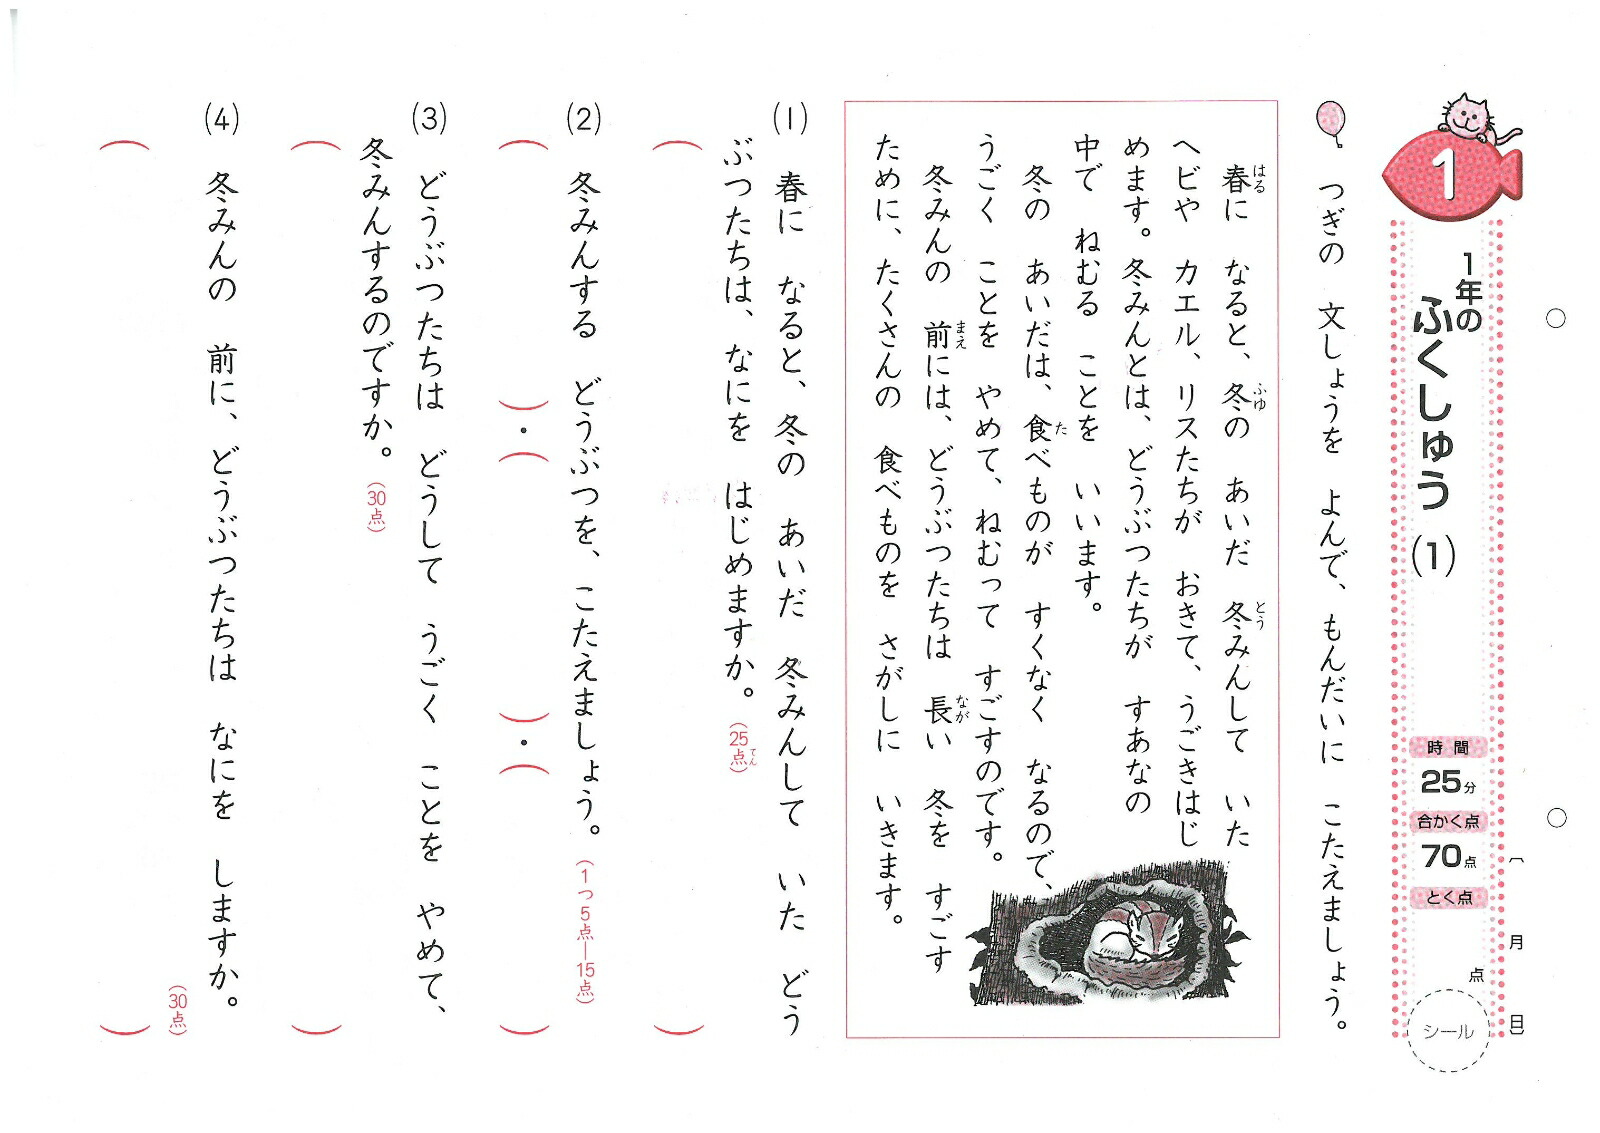 1
1年の
ふくしゅう(1)
時間
25分
合かく点
70点
とく点
点
〔 月 日〕
シール
つぎの 文しょうを よんで、もんだいに こたえましょう。
春に なると、冬の あいだ 冬みんして いた
はる ふゆ とう
ヘビや カエル、リスたちが おきて、うごきはじ
めます。冬みんとは、どうぶつたちが すあなの
中で ねむる ことを いいます。
冬の あいだは、食べものが すくなく なるので、
た
うごく ことを やめて、ねむって すごすのです。
冬みんの 前には、どうぶつたちは 長い 冬を すごす
まえ なが
ために、たくさんの 食べものを さがしに いきます。
(1) 春に なると、冬の あいだ 冬みんして いた どう
ぶつたちは、なにを はじめますか。(25点)
てん
( )
(2) 冬みんする どうぶつを、こたえましょう。(1つ5点—15点)
( )・( )・( )
(3) どうぶつたちは どうして うごく ことを やめて、
冬みんするのですか。(30点)
( )
(4) 冬みんの 前に、どうぶつたちは なにを しますか。
(30点)
( )